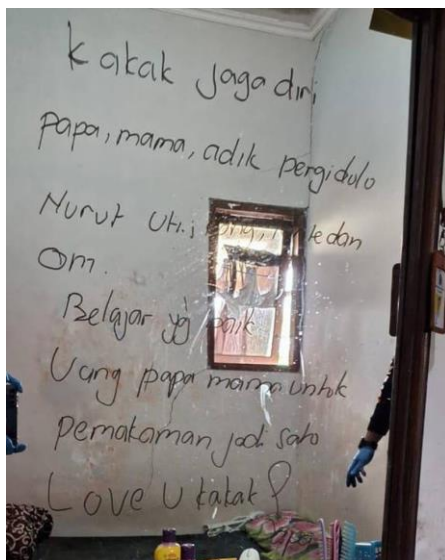 Kakak jaga diri,
papa, mama, adik pergi dulo
Nurut Uti, dan
Om.
Belajar yg baik
Uang papa mama untuk
pemakaman jadi sato
Love U kakak
papa